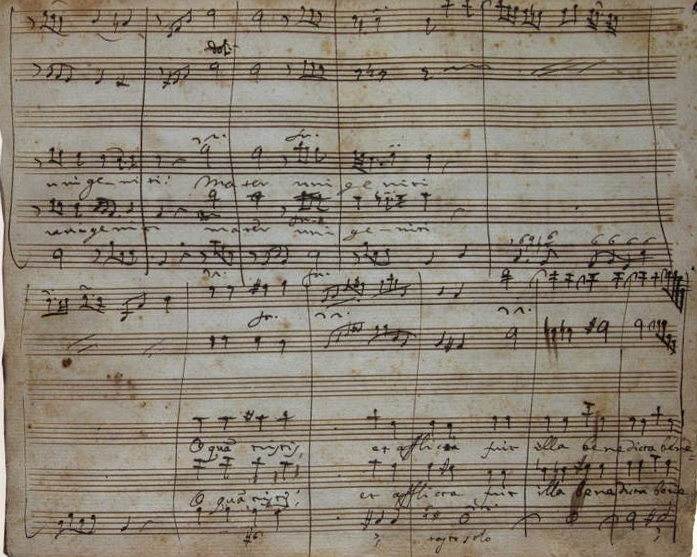 dol:
unigeniti: Mater unigeniti
unigeniti mater unigeniti
6 6 6 6
O quā tristis, et afflicta fuit illa benedicta bene
O quā tristis, et afflicta fuit illa benedicta bene
tasto solo